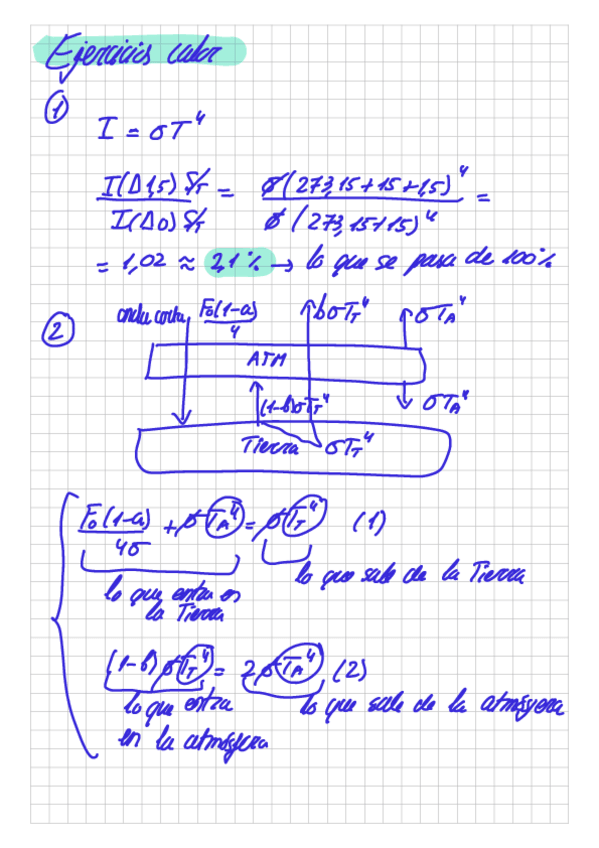 Ejercicios calor
①
I = σT⁴
I(Δ1,5) S/T / I(Δ0) S/T = σ(273,15+15+1,5)⁴ / σ(273,15+15)⁴ =
= 1,02 ≈ 2,1% → lo que se pasa de 100%
②
onda corta F₀(1-a)/4 bσT_T⁴ σT_A⁴
ATM
(1-b)σT_T⁴ σT_A⁴
Tierra σT_T⁴
F₀(1-a)/4σ + σT_A⁴ = σT_T⁴ (1)
lo que sale de la Tierra
lo que entra en
la Tierra
(1-b)σT_T⁴ = 2σT_A⁴ (2)
lo que entra lo que sale de la atmósfera
en la atmósfera